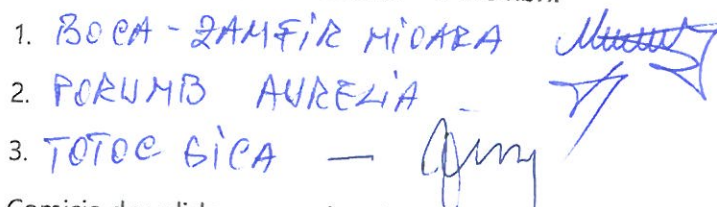 1. BOCA-ZAMFIR MIOARA
2. PORUMB AURELIA
3. TOTOC GICA —